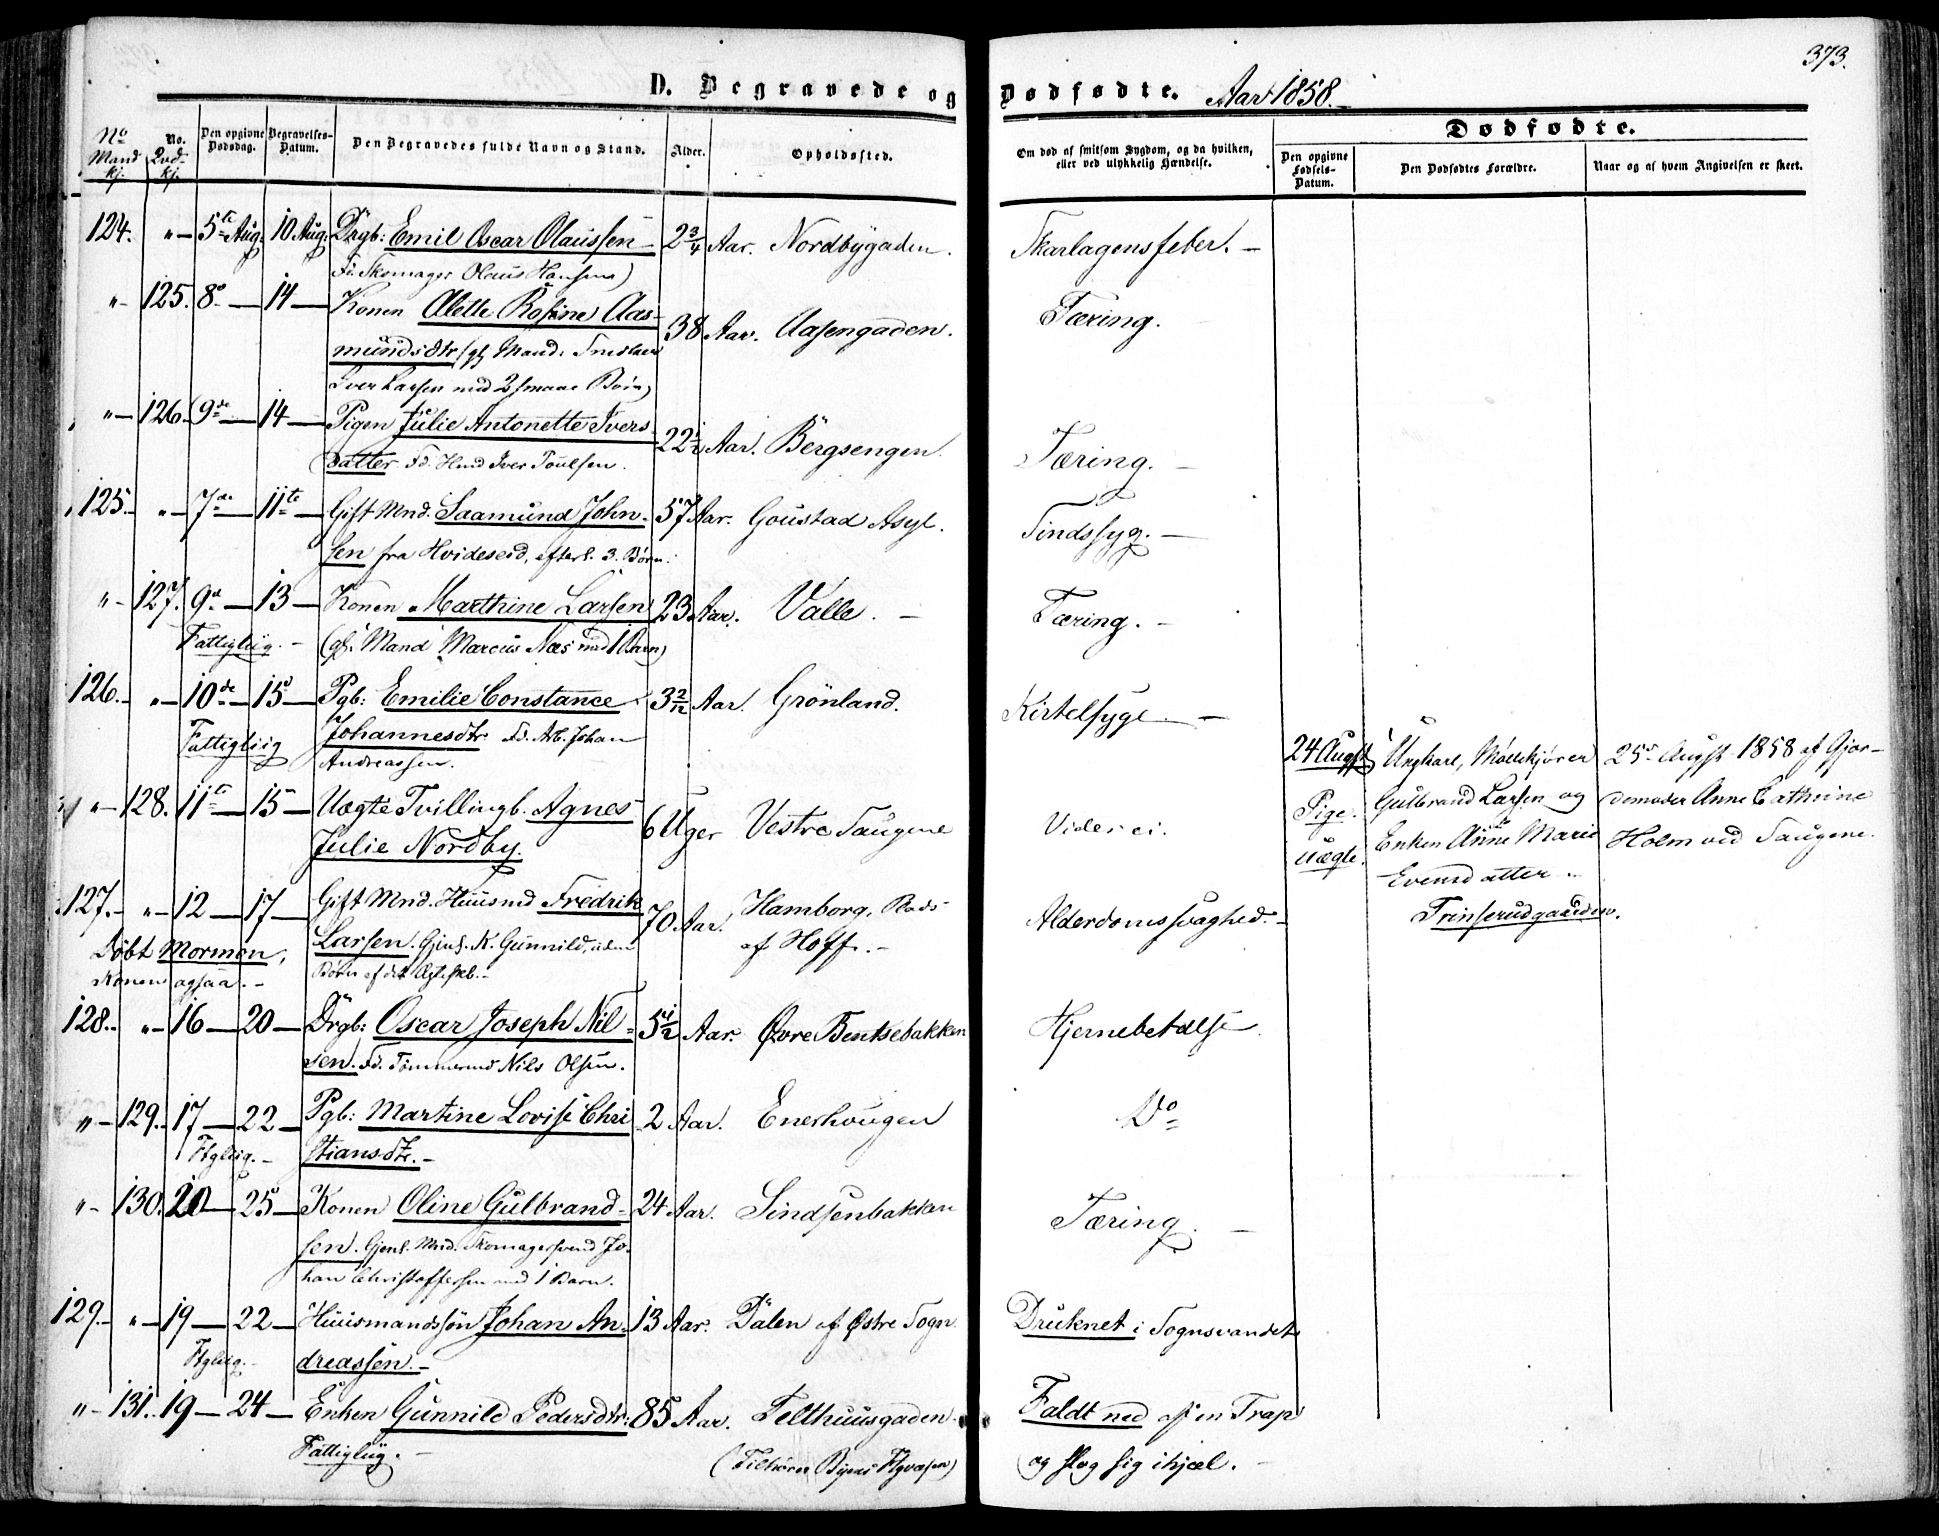 373.
D. Begravede og Dødfødte. Aar 1858.
No Mand kj.
No. Qvd- kj.
Den opgivne Dødsdag.
Begravelses-Datum.
Den Begravedes fulde Navn og Stand.
Alder.
Opholdssted.
Om død af smitsom Sygdom, og da hvilken, eller ved ulykkelig Hændelse.
Dødfødte.
Den opgivne Fødsels-Datum.
Den Dødfødtes Forældre.
Naar og af hvem Angivelsen er skeet.
124. " 5te Aug: 10 Aug: Drgb: Emil Oscar Olaussen 2 3/4 Aar. Nordbygaden. Skarlagensfeber.
Fd. Skomager Olaus Hansen)
" 125. 8de 14 Konen Olette Rosine Aas- 38 Aar. Aasengaden. Tæring.
mundsdtr (gl Mand:
Iver Larsen med 2 smaae Børn)
" 126. 9de 14 Pigen Julie Antonette Ivers- 22 1/2 Aar. Bergsengen. Tæring.
datter Fd. Hmd Iver Poulsen.
125. " 7de 11te Gift Mnd. Saamund John- 57 Aar. Goustad Asyl. Sindssyg.
sen fra Hvideseid, efterl. 3. Børn.
" 127. 9de 13 Konen Marthine Larsen 23 Aar. Valle. Tæring.
Fattigliig. (gl: Mand Marcus Næs med 1 Barn)
126. " 10de 15 Pgb: Emilie Constance 3 2/12 Aar. Grönland. Kirtelsyge.
Fattigliig Johannesdtr. Fd. Arb. Johan
Andreassen.
" 128. 11te 15 Uægte Tvillingb. Agnes 6 Uger Vestre Saugene Vides ei.
Julie Nordby.
24 Augst Ungkarl, Møllekjører 25de Augst 1858 af Gjor-
Pige. Gulbrand Larsen og demoder Anne Cathrine
uægte. Enken Anne Marie Holm ved Saugene.
Evensdatter
Trinserudgaarden.
127. " 12 17 Gift Mnd. Huusmd Fredrik 70 Aar. Hamborg, Plads Alderdomssvaghed.
Døbt Mormon, Larsen. Gjenl. K. Gunnild, uden af Hoff.
Konen ogsaa. Børn af det Ægteskb.
128. " 16 20 Drgb: Oscar Joseph Nil- 5 1/2 Aar. Øvre Bentsebakken Hjernebetælse
sen. Fd. Tømmermd Nils Olsen.
" 129. 17 22 Pgb: Martine Lovise Chri 2 Aar. Enerhougen Do
Ftgliig. stiansdtr.
" 130. 20 25 Konen Oline Gulbrand- 24 Aar. Sindsenbakken Tæring.
sen. Gjenl. Mnd. Skomagersvend Jo-
han Christoffersen med 1 Barn.
129. " 19 22 Huusmandssøn Johan An- 13 Aar. Dalen af Østre Sogn. Druknet i Sognsvandet
Ftgliig. dreassen.
" 131. 19 24 Enken Gunnild Pedersdtr: 85 Aar. Telthuusgaden. Faldt ned af en Trap
Fattigliig. (Tilhører Byens Ftgvæsen) og slog sig ihjel.